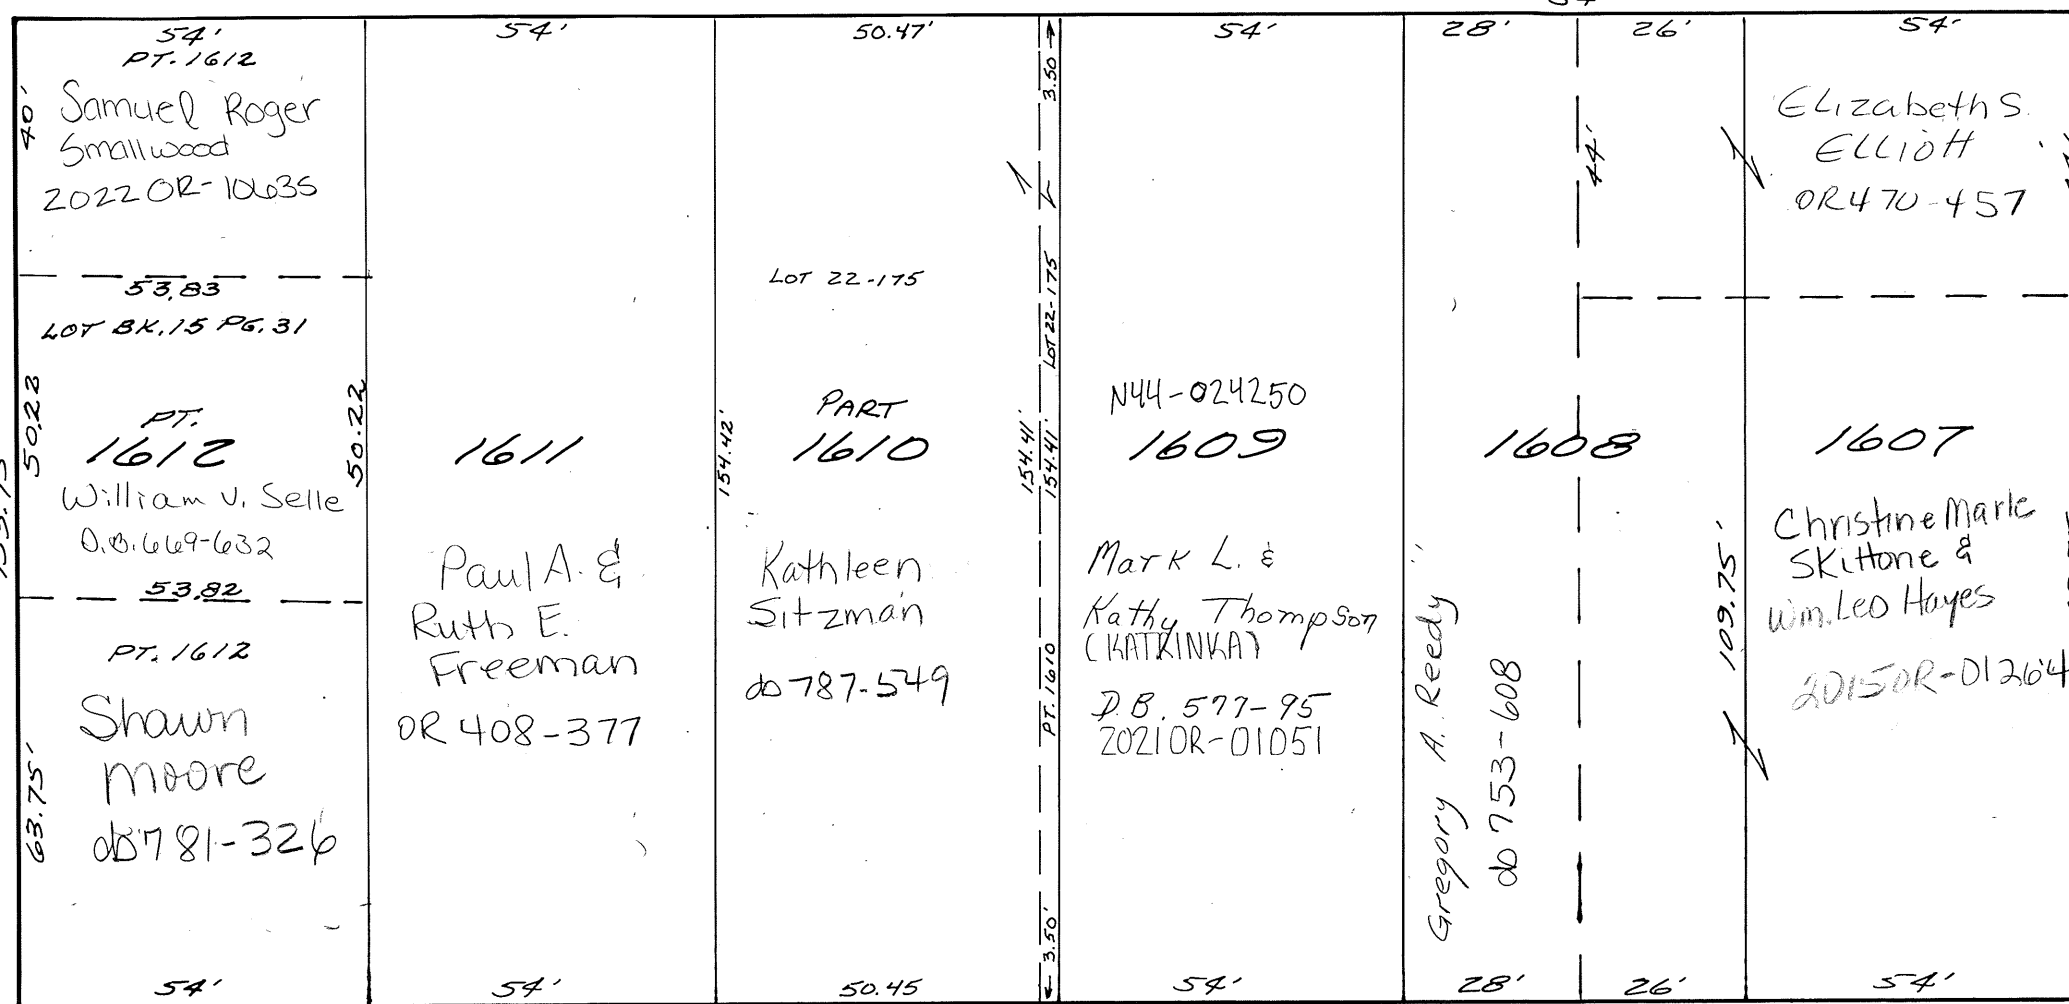 54'
PT. 1612
40'
Samuel Roger
Smallwood
2022 OR-10635
53.83
LOT BK. 15 PG. 31
50.22
50.22
PT.
1612
William V. Selle
D.B. 669-632
53.82
PT. 1612
Shawn
Moore
db 781-326
63.75'
54'
54'
1611
Paul A. &
Ruth E.
Freeman
OR 408-377
54'
50.47'
LOT 22-175
PART
1610
154.42'
154.41'
Kathleen
Sitzman
db 787-549
50.45
3.50
LOT 22-175
154.41'
PT. 1610
3.50'
54'
N44-024250
1609
Mark L. &
Kathy Thompson
(KATRINKA)
D.B. 577-95
2021OR-01051
54'
28'
26'
44'
1608
Gregory A. Reedy
db 753-608
109.75'
28'
26'
54'
Elizabeth S.
Elliott
OR 470-457
1607
Christine Marie
Skittone &
Wm. Leo Hayes
2015OR-01264
54'